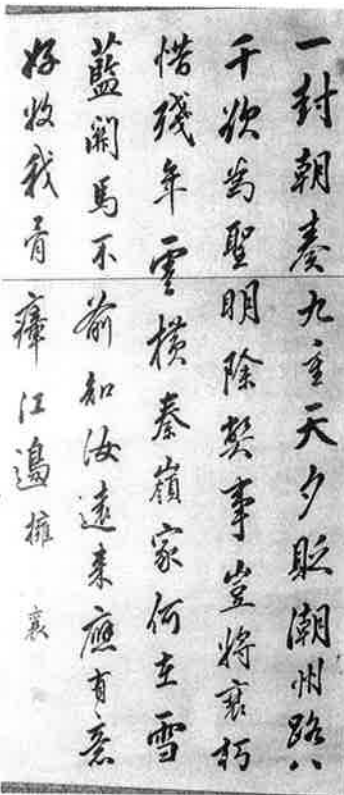 一封朝奏九重天夕貶潮州路八
千欲為聖明除弊事豈將衰朽
惜殘年雲橫秦嶺家何在雪
藍關馬不前知汝遠來應有意
好收我骨瘴江邊擁 襄